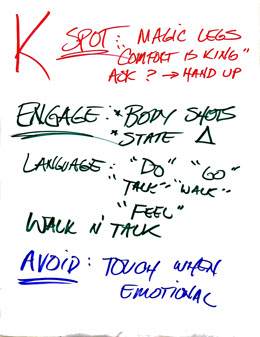 K SPOT: MAGIC LEGS
"COMFORT IS KING"
ASK? → HAND UP
ENGAGE: *BODY SHOTS
*STATE Δ
LANGUAGE: "DO" "GO"
"TALK" "WALK"
"FEEL"
WALK N' TALK
AVOID: TOUCH WHEN
EMOTIONAL